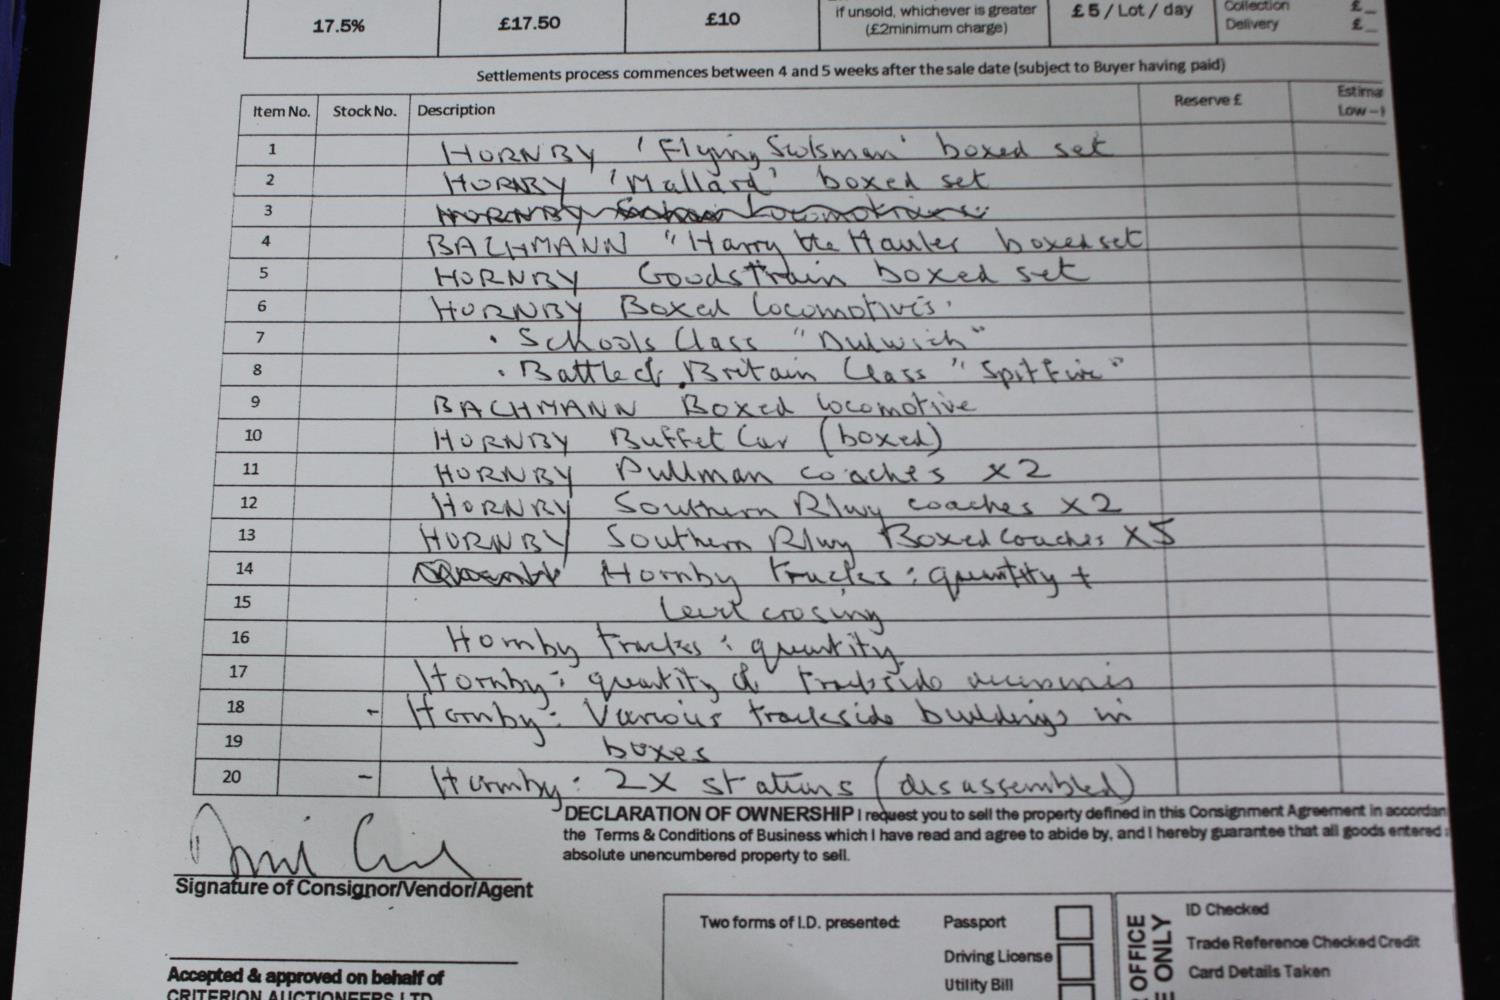 17.5% £17.50 £10 if unsold, whichever is greater (£2minimum charge) £5 / Lot / day Collection £_ Delivery £_
Settlements process commences between 4 and 5 weeks after the sale date (subject to Buyer having paid)
Item No. Stock No. Description Reserve £ Estima Low –
1 HORNBY 'Flying Scotsman' boxed set
2 HORNBY 'Mallard' boxed set
3 HORNBY Locomotives
4 BACHMANN "Harry the Hauler boxed set
5 HORNBY Goods train boxed set
6 HORNBY Boxed locomotives.
7 • Schools Class "Dulwich"
8 • Battle of Britain Class "Spitfire"
9 BACHMANN Boxed locomotive
10 HORNBY Buffet Car (boxed)
11 HORNBY Pullman coaches x2
12 HORNBY Southern Rlwy coaches x2
13 HORNBY Southern Rlwy Boxed coaches x5
14 Hornby trucks: quantity +
15 level crosing
16 Hornby tracks: quantity
17 Hornby: quantity of trackside
18 - Hornby: Various trackside buildings in
19 boxes
20 - Hornby: 2x stations (disassembled)
DECLARATION OF OWNERSHIP I request you to sell the property defined in this Consignment Agreement in accordan
the Terms & Conditions of Business which I have read and agree to abide by, and I hereby guarantee that all goods entered
absolute unencumbered property to sell.
Signature of Consignor/Vendor/Agent
Accepted & approved on behalf of
CRITERION AUCTIONEERS LTD
Two forms of I.D. presented: Passport
Driving License
Utility Bill
OFFICE
E ONLY
ID Checked
Trade Reference Checked Credit
Card Details Taken